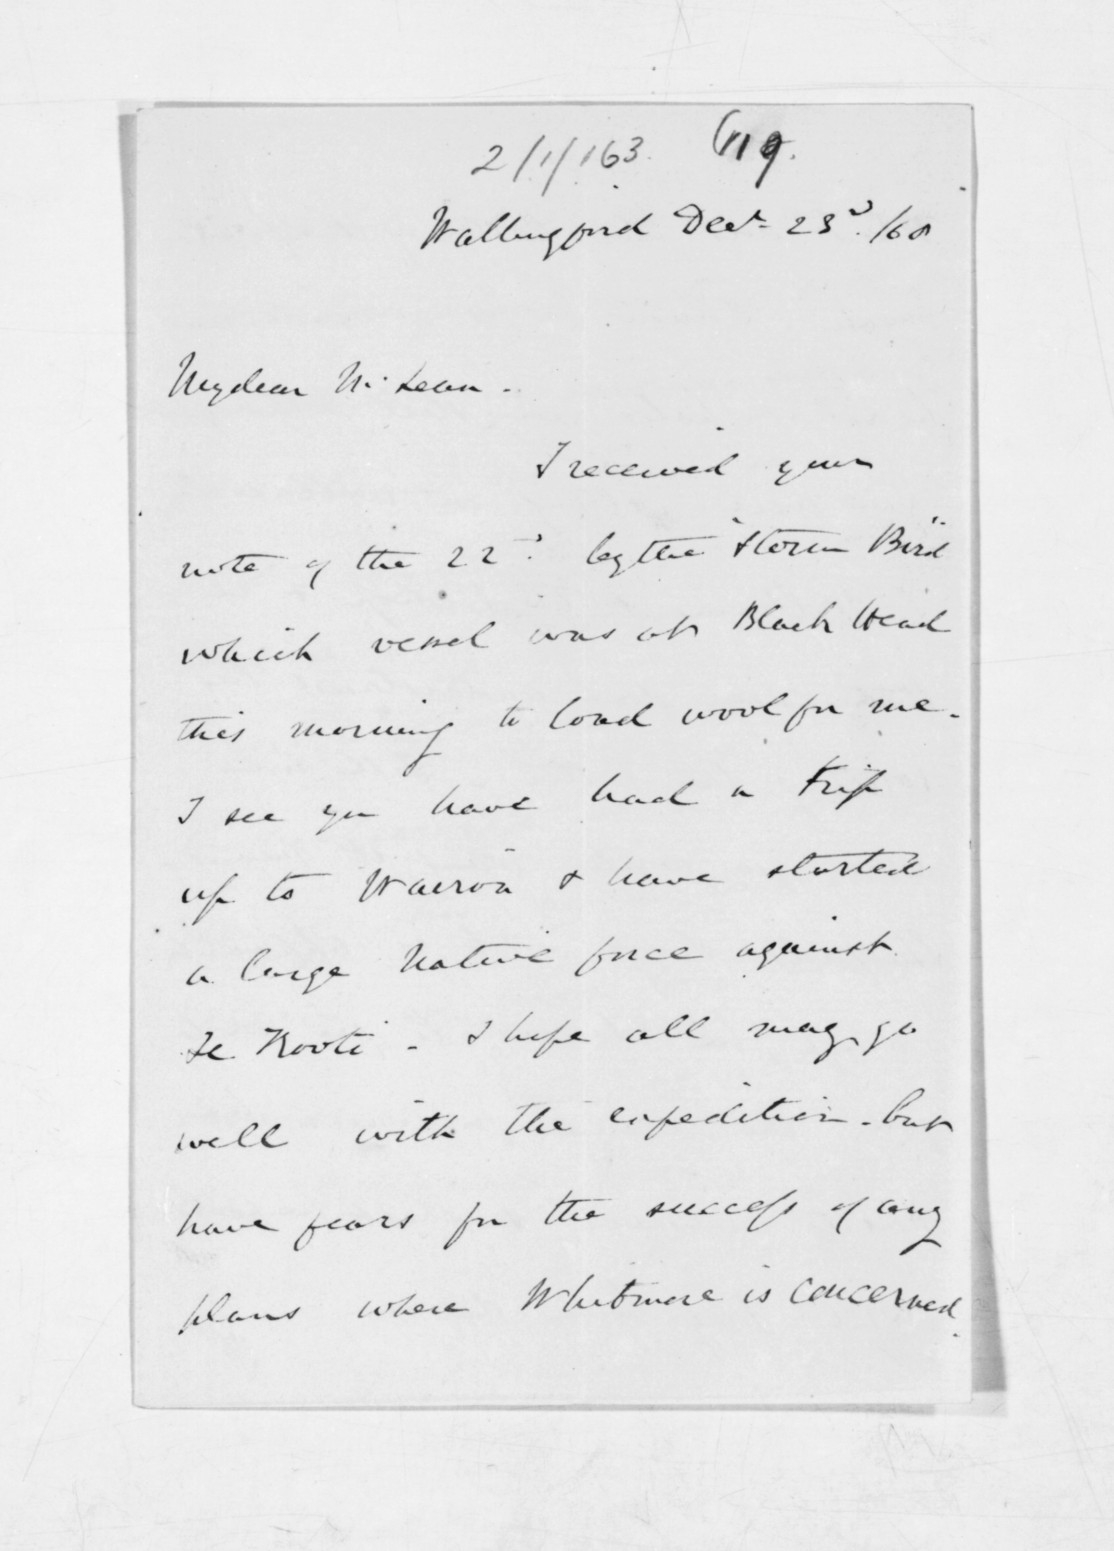 2/1/163. 619.
Wallingford Decr. 23d. /68
My dear McLean.
I received your
note of the 22d. by the "Storm Bird"
which vessel was at Black Head
this morning to load wool for me.
I see you have had a trip
up to Wairoa & have started
a large Native force against
Te Kooti. I hope all may go
well with the expedition. but
have fears for the success of any
plans where Whitmore is concerned.